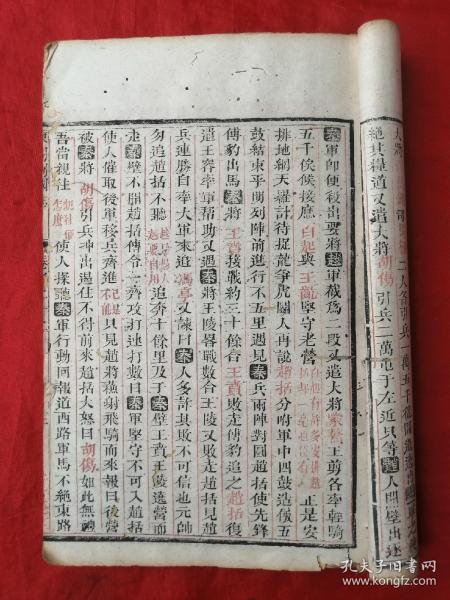 絕其糧道又遣大將胡傷引兵二萬屯于左近只等趙人開壁出逐
秦軍即便殺出要將趙軍截爲二段又遣大將蒙驁王翦各率輕騎
五千俟候接應白起與王齕堅守老營正是安
排地網天羅計待捉龍爭虎鬬人再說趙括分咐軍中四鼓造飯五
鼓結束平明列陣前進行不五里遇見秦兵兩陣對圓趙括使先鋒
傅豹出馬秦將王賁接戰約三十餘合王賁敗走傅豹追之趙括復
遣王容率軍幫助又遇秦將王陵畧戰數合王陵又敗走趙括見趙
兵連勝自率大軍來追馮亭又諫曰秦人多詐其敗不可信也元帥
勿追趙括不聽追奔十餘里及于秦壁王賁王陵遶營而
走秦壁不開趙括傳令一齊攻打連打數日秦軍堅守不可入趙括
使人催取後軍移兵齊進只見趙將蘇射飛騎而來報曰後營
被秦將胡傷引兵冲出遏住不得前來趙括大怒曰胡傷如此無禮
吾當親往使人探聽秦軍行動回報道西路軍馬不絕東路
孔夫子旧书网